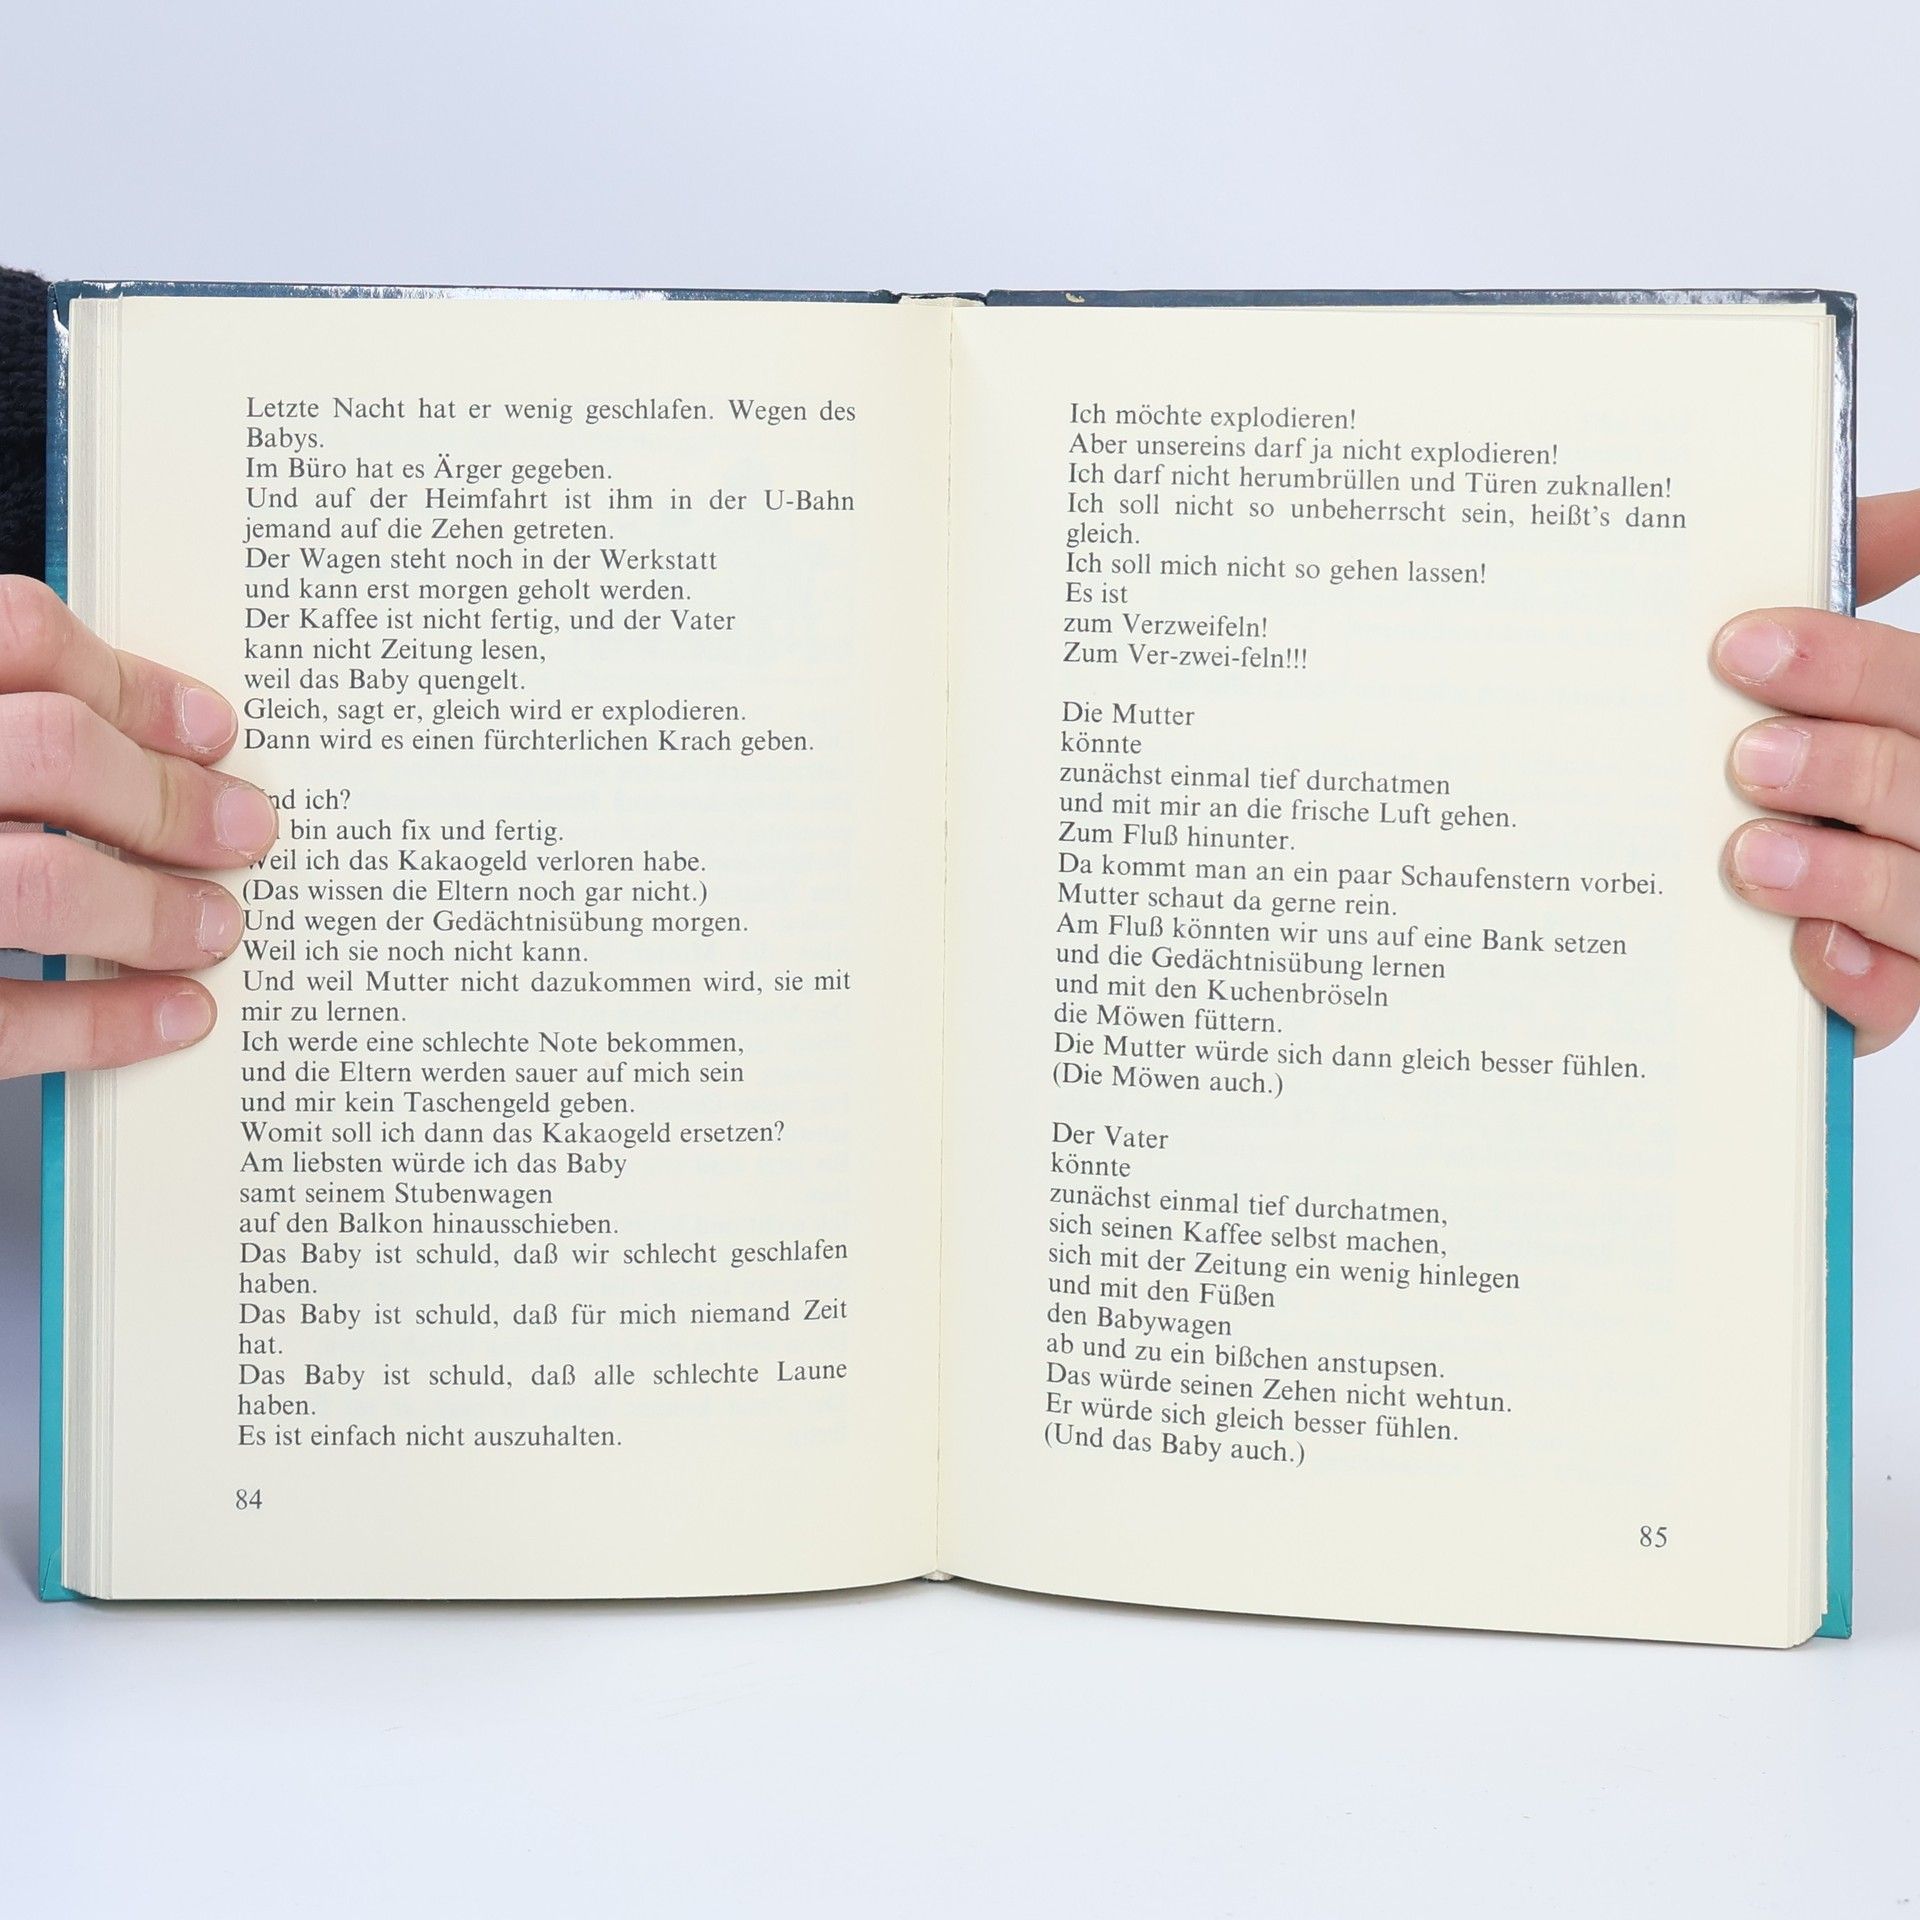 Letzte Nacht hat er wenig geschlafen. Wegen des
Babys.
Im Büro hat es Ärger gegeben.
Und auf der Heimfahrt ist ihm in der U-Bahn
jemand auf die Zehen getreten.
Der Wagen steht noch in der Werkstatt
und kann erst morgen geholt werden.
Der Kaffee ist nicht fertig, und der Vater
kann nicht Zeitung lesen,
weil das Baby quengelt.
Gleich, sagt er, gleich wird er explodieren.
Dann wird es einen fürchterlichen Krach geben.
Und ich?
bin auch fix und fertig.
Weil ich das Kakaogeld verloren habe.
(Das wissen die Eltern noch gar nicht.)
Und wegen der Gedächtnisübung morgen.
Weil ich sie noch nicht kann.
Und weil Mutter nicht dazukommen wird, sie mit
mir zu lernen.
Ich werde eine schlechte Note bekommen,
und die Eltern werden sauer auf mich sein
und mir kein Taschengeld geben.
Womit soll ich dann das Kakaogeld ersetzen?
Am liebsten würde ich das Baby
samt seinem Stubenwagen
auf den Balkon hinausschieben.
Das Baby ist schuld, daß wir schlecht geschlafen
haben.
Das Baby ist schuld, daß für mich niemand Zeit
hat.
Das Baby ist schuld, daß alle schlechte Laune
haben.
Es ist einfach nicht auszuhalten.
84
Ich möchte explodieren!
Aber unsereins darf ja nicht explodieren!
Ich darf nicht herumbrüllen und Türen zuknallen!
Ich soll nicht so unbeherrscht sein, heißt's dann
gleich.
Ich soll mich nicht so gehen lassen!
Es ist
zum Verzweifeln!
Zum Ver-zwei-feln!!!
Die Mutter
könnte
zunächst einmal tief durchatmen
und mit mir an die frische Luft gehen.
Zum Fluß hinunter.
Da kommt man an ein paar Schaufenstern vorbei.
Mutter schaut da gerne rein.
Am Fluß könnten wir uns auf eine Bank setzen
und die Gedächtnisübung lernen
und mit den Kuchenbröseln
die Möwen füttern.
Die Mutter würde sich dann gleich besser fühlen.
(Die Möwen auch.)
Der Vater
könnte
zunächst einmal tief durchatmen,
sich seinen Kaffee selbst machen,
sich mit der Zeitung ein wenig hinlegen
und mit den Füßen
den Babywagen
ab und zu ein bißchen anstupsen.
Das würde seinen Zehen nicht wehtun.
Er würde sich gleich besser fühlen.
(Und das Baby auch.)
85